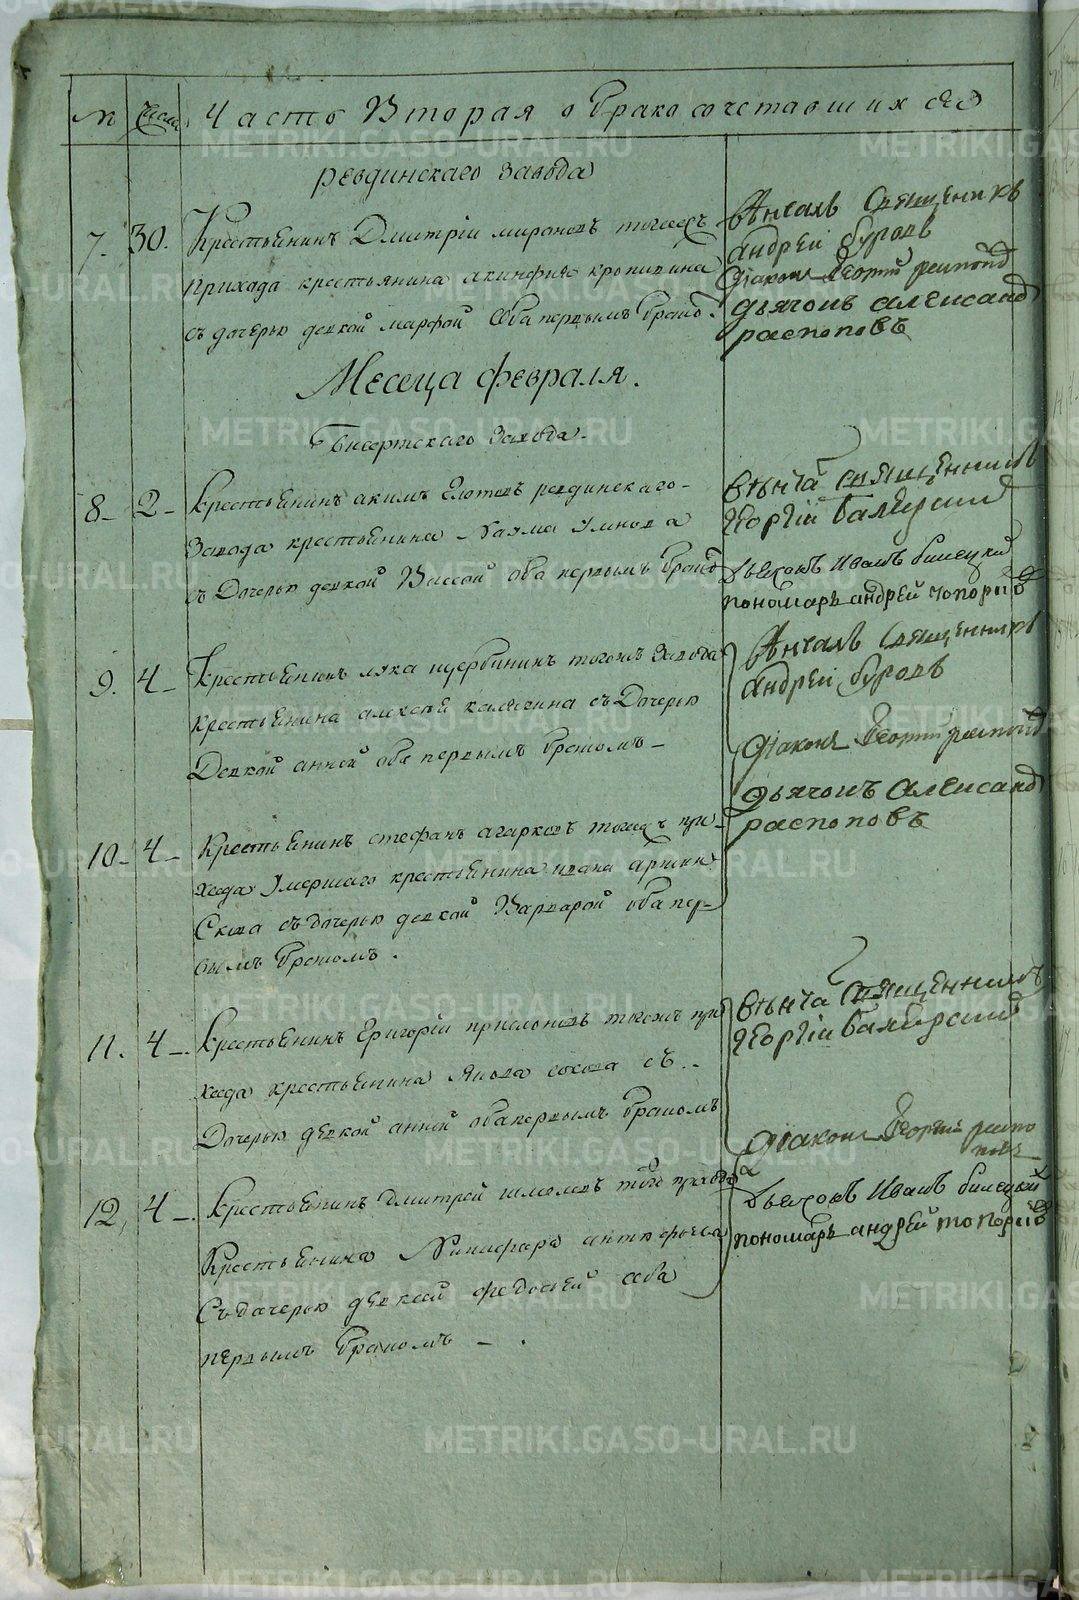 № Число Часть Вторая о бракосочетавшихся
ревдинскаго завода
7. 30. Крестьянинъ Дмитрiй мироновъ тогожъ
прихода крестьянина акинфия кропивина
съ дочерью девкой марфой оба первымъ бракомъ
Венчалъ Священникъ
андрей буровъ
дiаконъ Георгiй
дьячокъ александ
распоповъ
Месеца февраля.
Бисертскаго завода.
8 2 Крестьянинъ акимъ ревдинскаго
завода крестьянина Наума Умнова
съ Дочерью девкой Вассой оба первымъ бракомъ
венча священникъ
георгiй
дьяконъ Иванъ билецкий
пономарь андрей топорков
9. 4 Крестьянинъ лука щербининъ тогожъ завода
крестьянина алексея калягина съ Дочерью
Девкой анной оба первымъ бракомъ
Венчалъ Священникъ
андрей буровъ
дiаконъ Георгiй
дьячокъ александ
распоповъ
10 4 Крестьянинъ стефанъ агарковъ тогожъ при
хода Умершаго крестьянина ивана
съ дочерью девкой Варварой оба пер
вымъ бракомъ.
11. 4 Крестьянинъ Григорiй тогожъ при
хода крестьянина Якова сокова съ
Дочерью девкой анной оба первымъ бракомъ
венча священникъ
георгiй
дiаконъ Георгiй распо
повъ
12 4 Крестьянинъ дмитрей того прихода
Крестьянина Никифора антофьева
Съ дочерью девкой федосьей оба
первымъ бракомъ
дьяконъ Иванъ билецкий
пономарь андрей топорков
METRIKI.GASO-URAL.RU